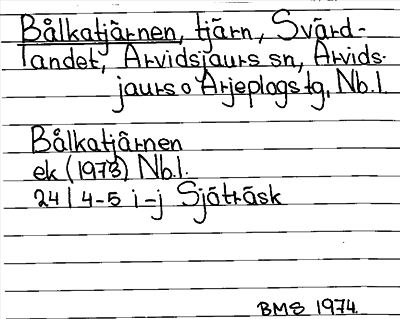 Bålkatjärnen, tjärn, Svärd-
landet, Arvidsjaurs sn, Arvids-
jaurs o Arjeplogs tg, Nb.l.
Bålkatjärnen
ek (1973) Nb.l.
24 I 4-5 i-j Sjäträsk
BMS 1974